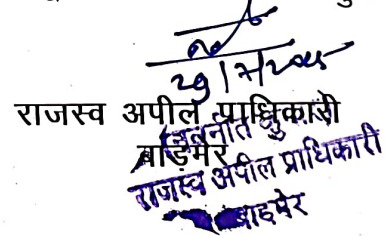 29/7/2025
राजस्व अपील प्राधिकारी
बाड़मेर
राजस्व अपील प्राधिकारी
बाड़मेर